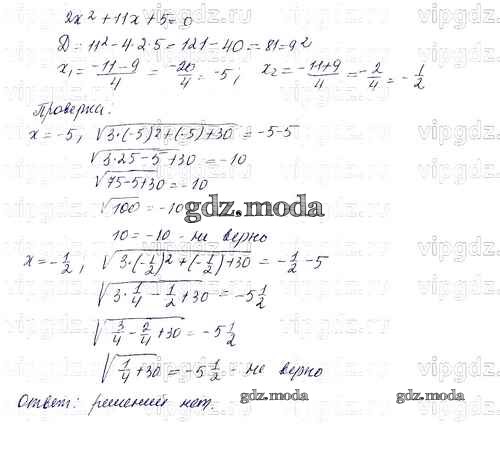 2x² + 11x + 5 = 0
D = 11² - 4·2·5 = 121 - 40 = 81 = 9²
x₁ = (-11-9)/4 = -20/4 = -5; x₂ = (-11+9)/4 = -2/4 = -1/2
Проверка:
x = -5, √(3·(-5)² + (-5) + 30) = -5-5
√(3·25 - 5 + 30) = -10
√(75-5+30) = -10
√100 = -10
gdz.moda
10 = -10 - не верно
x = -1/2, √(3·(-1/2)² + (-1/2) + 30) = -1/2 - 5
√(3·1/4 - 1/2 + 30) = -5 1/2
√(3/4 - 2/4 + 30) = -5 1/2
√(1/4 + 30) = -5 1/2 - не верно
Ответ: решений нет.
gdz.moda gdz.moda
vipgdz